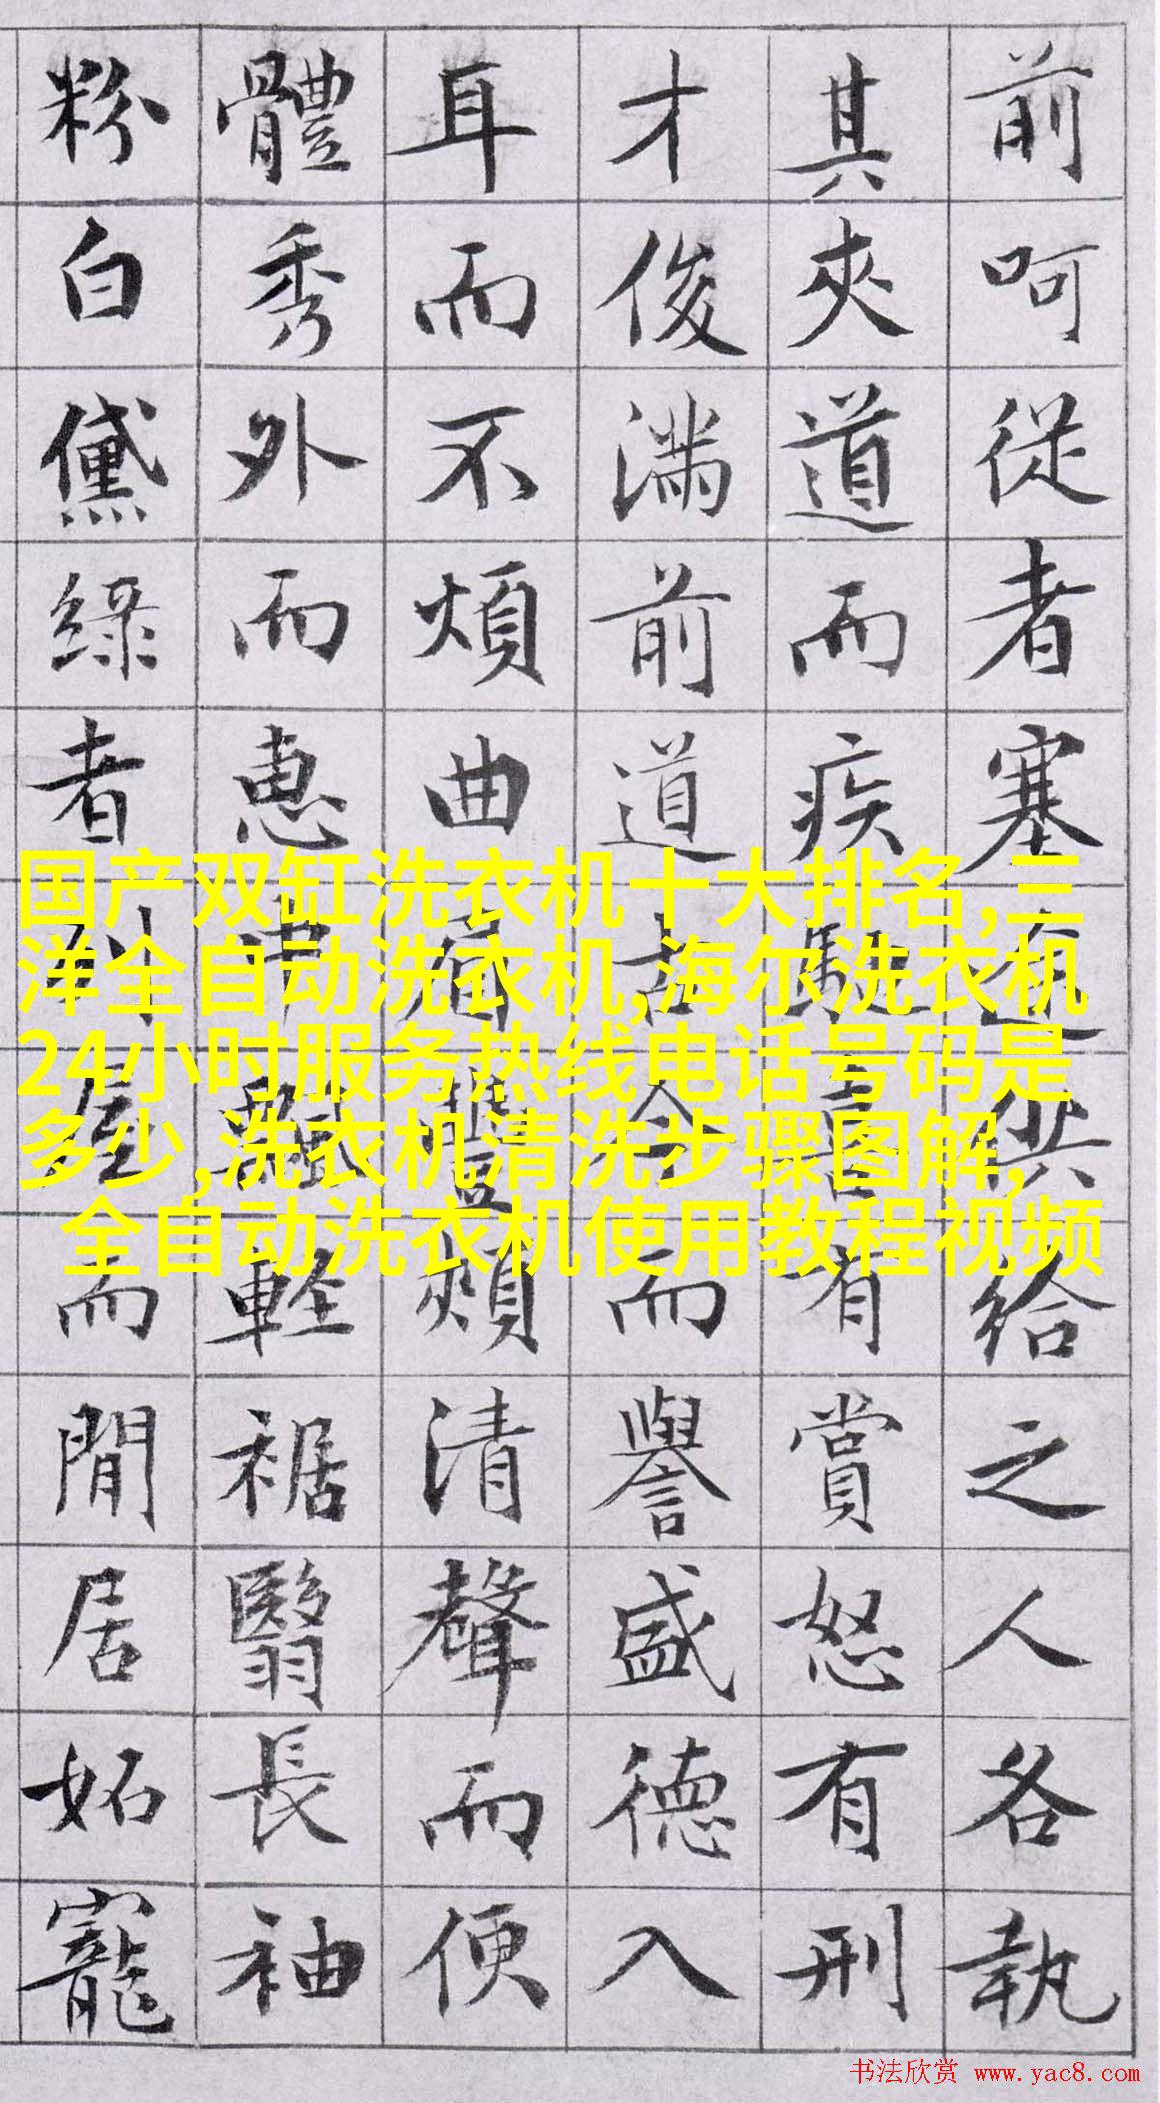 前呵從者塞途供給之人各執
其夾道而疾馳喜有賞怒有刑
才俊滿前道古今而譽盛德入
耳而不煩曲眉豐頰清聲而便
體秀外而惠中飄輕裾翳長袖
粉白黛綠者列屋而閒居妬寵
国产双缸洗衣机十大排名,三
洋全自动洗衣机,海尔洗衣机
24小时服务热线电话号码是
多少,洗衣机清洗步骤图解,
全自动洗衣机使用教程视频
书法欣赏 www.yac8.com